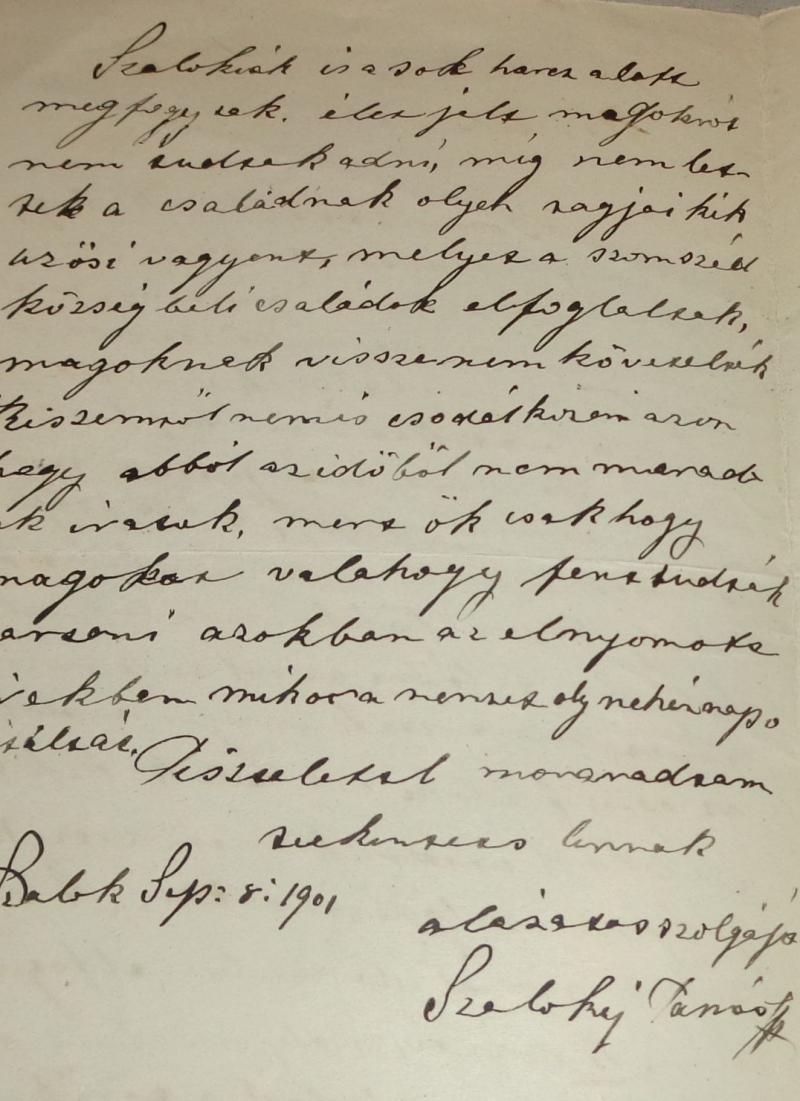 Szalokiak is a sok harcz alatt
megfogytak. életjelt magokról
nem tudtak adni, míg nem let-
tek a családnak olyan tagjai kik
az ősi vagyont, melyet a szomszéd
községbeli családok elfoglaltak,
magoknak vissza nem követelték
Részemről nem is csodálkozom azon
hogy abból az időből nem marad
ak irasok, mert ők csak hogy
magokat valahogy fent tudták
artani azokban az elnyomott
vekben mikor a nemzet oly nehéz napo
Tisztelettel
tekintetes Urnak
Szalok Sep: 8: 1901
alázatos szolgája
Szaloky